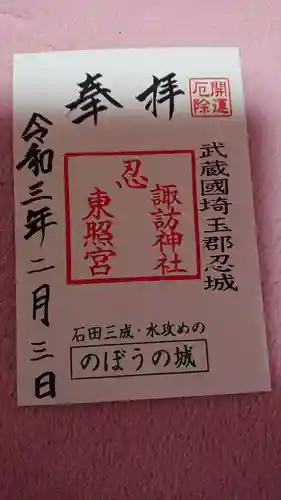 奉拝
開運
厄除
武蔵國埼玉郡忍城
忍
諏訪神社
東照宮
令和三年二月三日
石田三成・水攻めの
のぼうの城